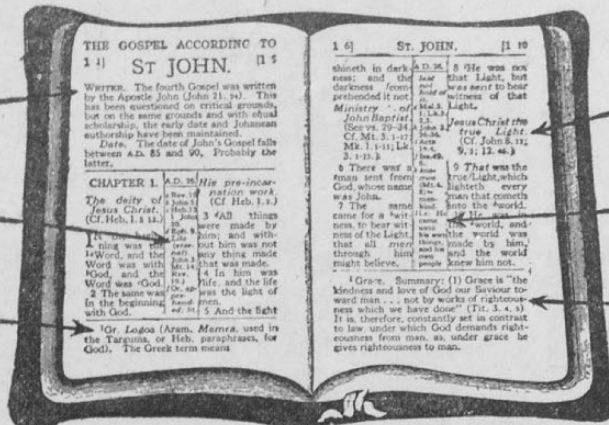 THE GOSPEL ACCORDING TO
1 1] ST JOHN. [1 5
WRITER. The fourth Gospel was written
by the Apostle John (John 21. 24). This
has been questioned on critical grounds,
but on the same grounds and with equal
scholarship, the early date and Johanean
authorship have been maintained.
Date. The date of John's Gospel falls
between A.D. 85 and 90, Probably the
latter.
CHAPTER 1.
The deity of
Jesus Christ.
(Cf. Heb. 1.
ning was the
Word, and the
Word was with
God, and the
Word was God.
2 The same was
in the beginning
with God.
A.D. 26.
Life
John 3.
Mt.
Rev.
His pre-incar-
nation work.
(Cf. Heb. 1. 2.)
3 All things
were made by
him; and with-
out him was not
any thing made
that was made.
4 In him was
life, and the life
was the light of
men.
5 And the light
Gr. Logos (Aram. Memra, used in
the Targums, or Heb. paraphrases, for
God). The Greek term means
1 6] ST. JOHN. [1 10
shineth in dark-
ness; and the
darkness com-
prehended it not.
Ministry of
John Baptist
(See vs. 29-34.
Cf. Mt. 3. 1-17;
Mk. 1. 1-11; Lk.
3.
6 There was a
man sent from
God, whose name
was John.
7 The same
came for a wit-
ness, to bear wit-
ness of the Light,
that all men
through him
might believe.
A.D. 26.
hold
not
hold of
it.
John 3.
Acts
Isa. 49.
kind.
I.e. He
came
unto
his own
things,
and his
own
people
8 He was not
that Light, but
was sent to bear
witness of that
Light.
Jesus Christ the
true Light.
(Cf. John 8. 12;
9. 5; 12. 46.)
9 That was the
true Light, which
lighteth every
man that cometh
into the world.
He was in
the world, and
the world was
made by him,
and the world
knew him not.
Grace. Summary: (1) Grace is "the
kindness and love of God our Saviour to-
ward man . . . not by works of righteous-
ness which we have done" (Tit. 3. 4, 5).
It is, therefore, constantly set in contrast
to law, under which God demands right-
eousness from man, as, under grace he
gives righteousness to man.